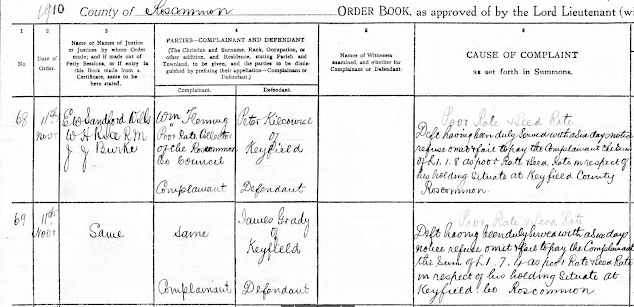 1910 County of Roscommon ORDER BOOK, as approved of by the Lord Lieutenant (wi
1 2 3 4 5 6
Date of Order.
Name or Names of Justice or Justices by whom Order made; and if made out of Petty Sessions, or if entry in this Book made from a Certificate, same to be here stated.
PARTIES—COMPLAINANT AND DEFENDANT
(The Christian and Surname, Rank, Occupation, or other addition, and Residence, stating Parish and Townland, to be given, and the parties to be distinguished by prefixing their appellation—Complainant or Defendant.)
Complainant. Defendant.
Names of Witnesses examined, and whether for Complainant or Defendant.
CAUSE OF COMPLAINT
as set forth in Summons.
68 11th Novr
E W Sandford Wills
W H Rice R.M
J J Burke
Wm Fleming
Poor Rate Collector
of the Roscommon
Co Council
Complainant
Peter Kilcourse
of
Keyfield
Defendant
Poor Rate & Seed Rate
Deft having been duly served with a six days notice
refuse omit & fail to pay the Complainant the Sum
of £1.1.8 as poor Rate & Seed Rate in respect of
his holding Situate at Keyfield County
Roscommon
69 11th Novr
Same
Same
Complainant
James Grady
of
Keyfield
Defendant
Poor Rate & Seed Rate
Deft having been duly served with a six days
notice refuse omit & fail to pay the Complainant
the Sum of £1.7.4 as poor Rate & Seed Rate
in respect of his holding Situate at
Keyfield Co Roscommon